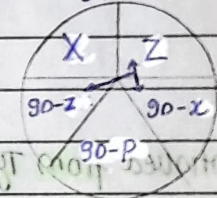 X Z
90-z 90-x
90-P